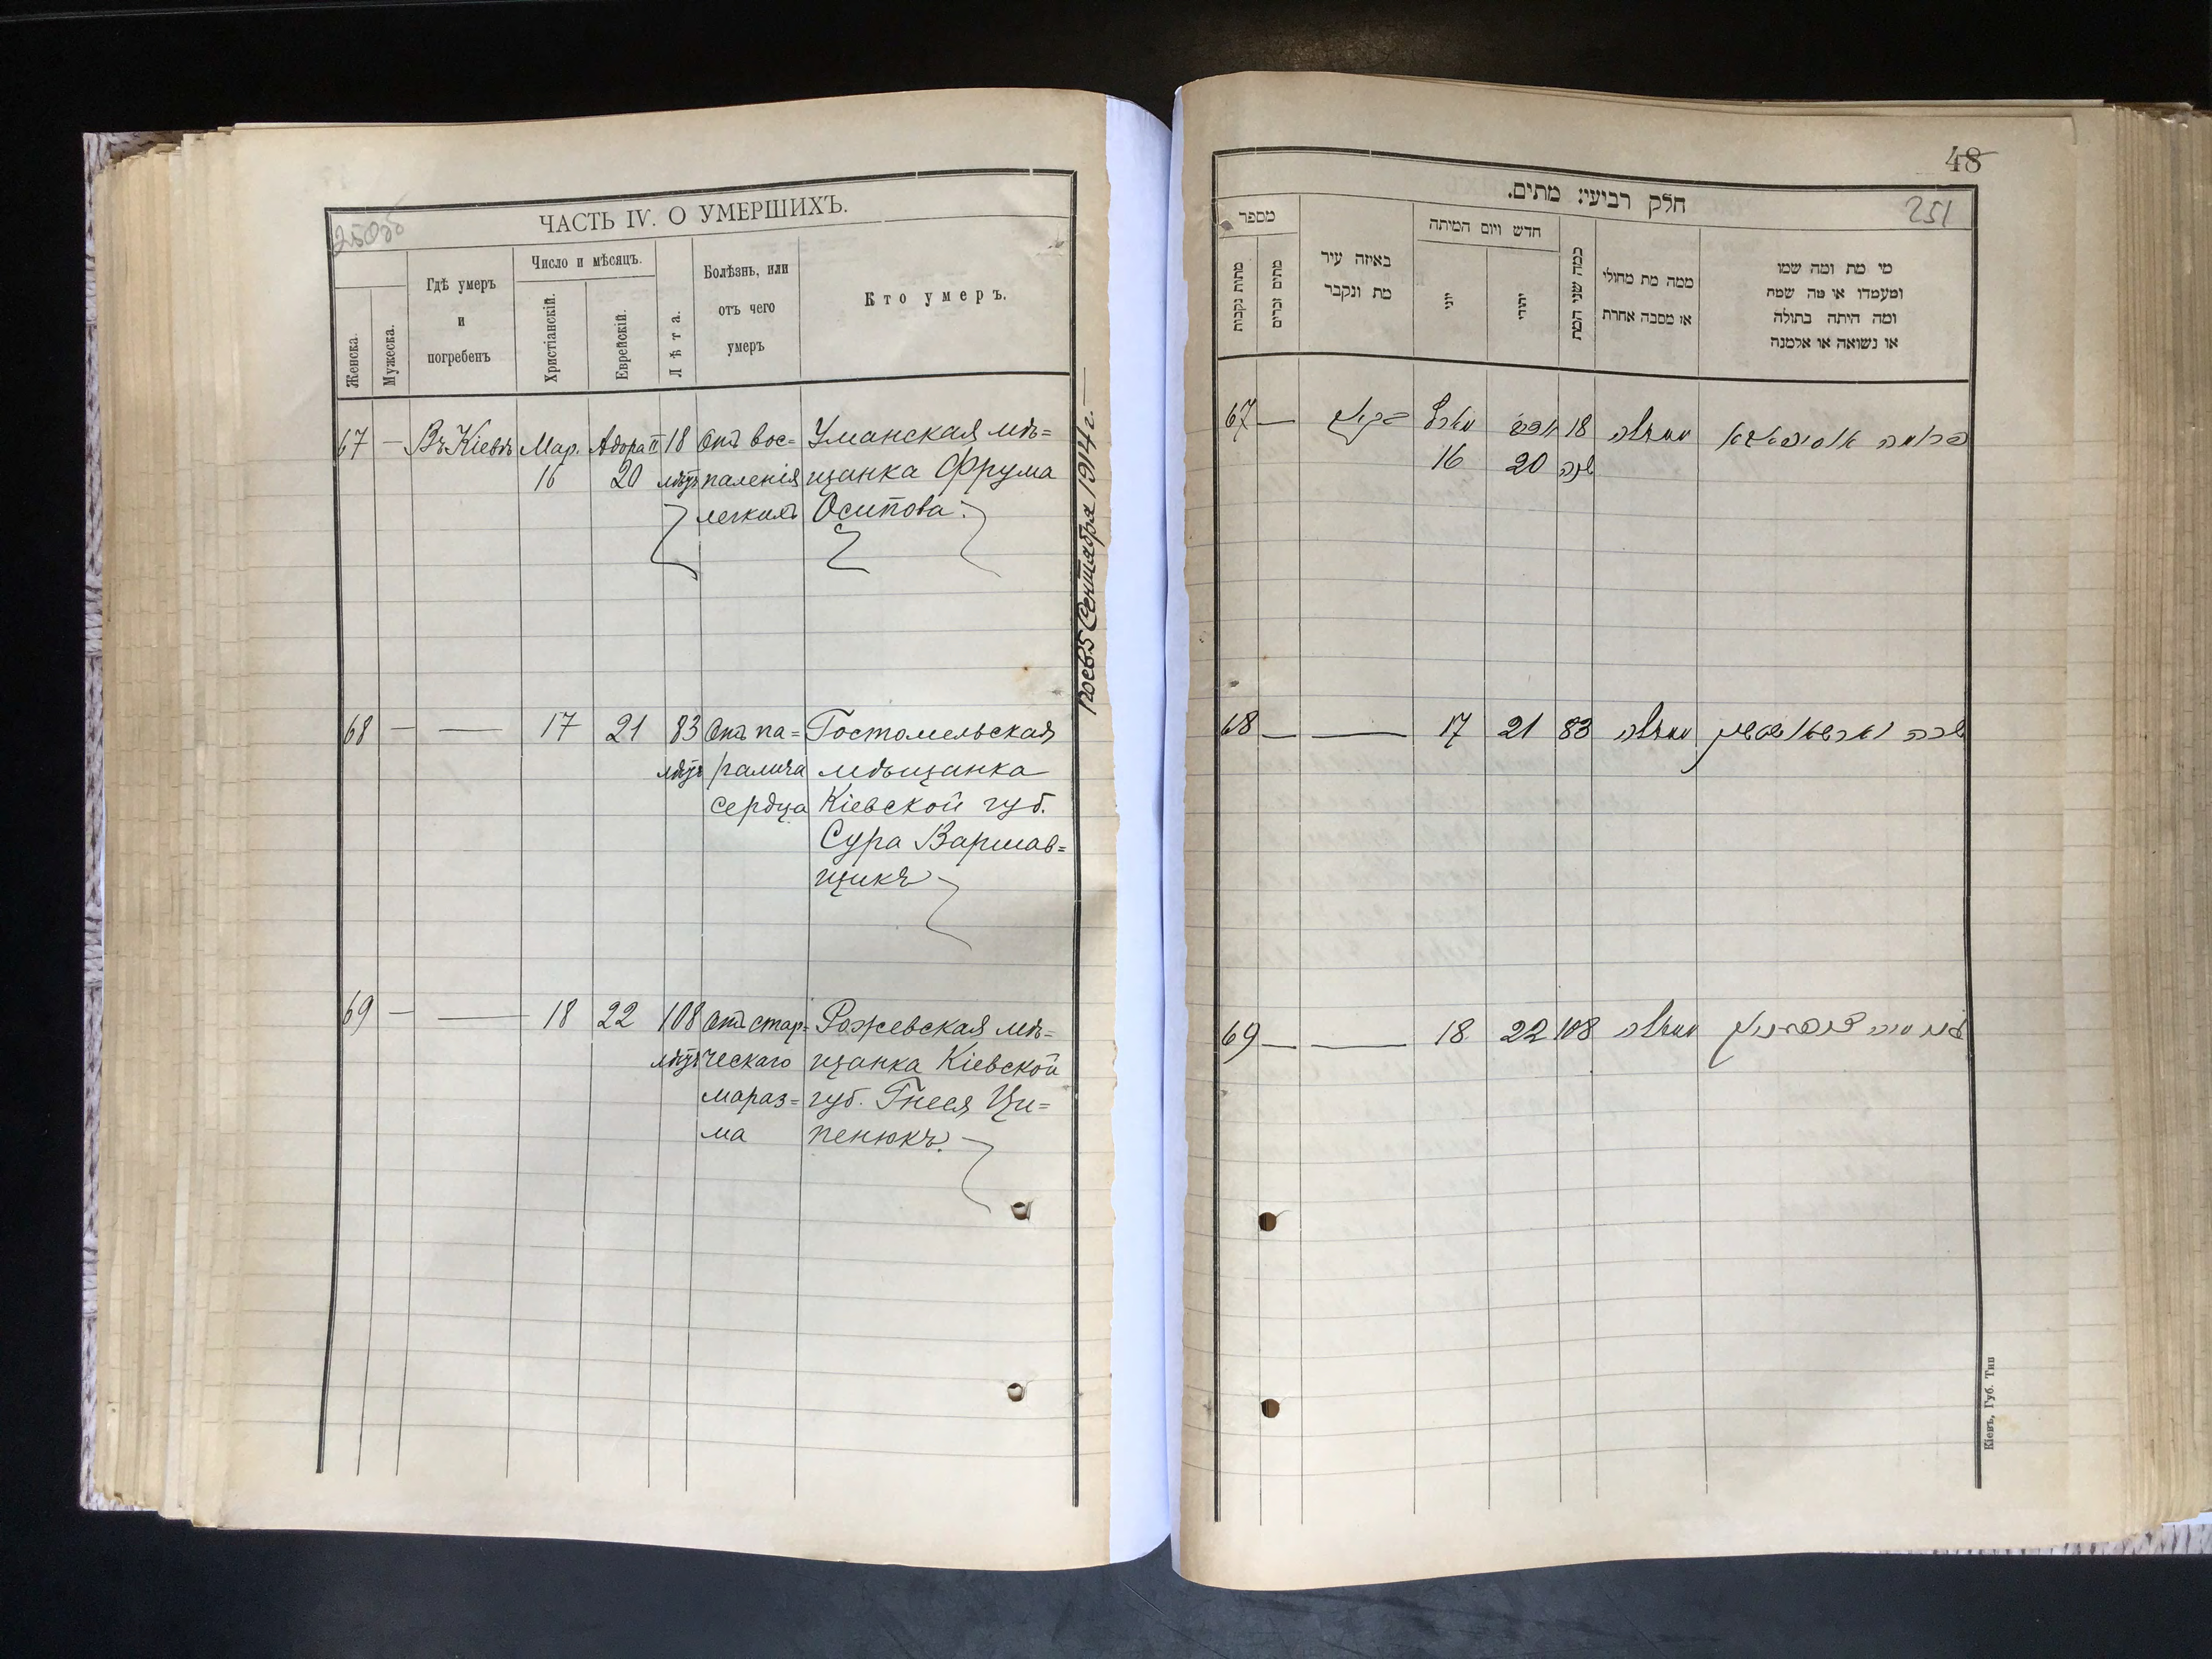 250об
ЧАСТЬ IV. О УМЕРШИХЪ.
Женска.
Мужеска.
Гдѣ умеръ
и
погребенъ
Число и мѣсяцъ.
Христіанскій.
Еврейскій.
Лѣта.
Болѣзнь, или
отъ чего
умеръ
Кто умеръ.
67 — Въ Кіевѣ Мар. Адора II 18 Отъ вос= Уманская мѣ=
16 20 лѣтъ паленія щанка Фрума
легкихъ Осипова.
68 — — 17 21 83 Отъ па= Гостомельская
лѣтъ ралича мѣщанка
сердца Кіевской губ.
Сура Варшав=
щикъ
69 — — 18 22 108 Отъ стар= Рожевская мѣ=
лѣтъ ческаго щанка Кіевской
мараз= губ. Гнеся Ци=
ма пенюкъ.
5 Сентября 1914 г.
48
251
חלק רביעי: מתים.
מספר
מתות נקבות
מתים זכרים
באיזה עיר
מת ונקבר
חדש ויום המיתה
יוני
יהודי
כמה שני המת
ממה מת מחולי
או מסבה אחרת
מי מת ומה שמו
ומעמדו או מה שמה
ומה היתה בתולה
או נשואה או אלמנה
67 — מארץ 18 ממחלה
16 20 שנה
68 — — 17 21 83 ממחלה שרה
69 — — 18 22 108 ממחלה
Кіевъ, Губ. Тип